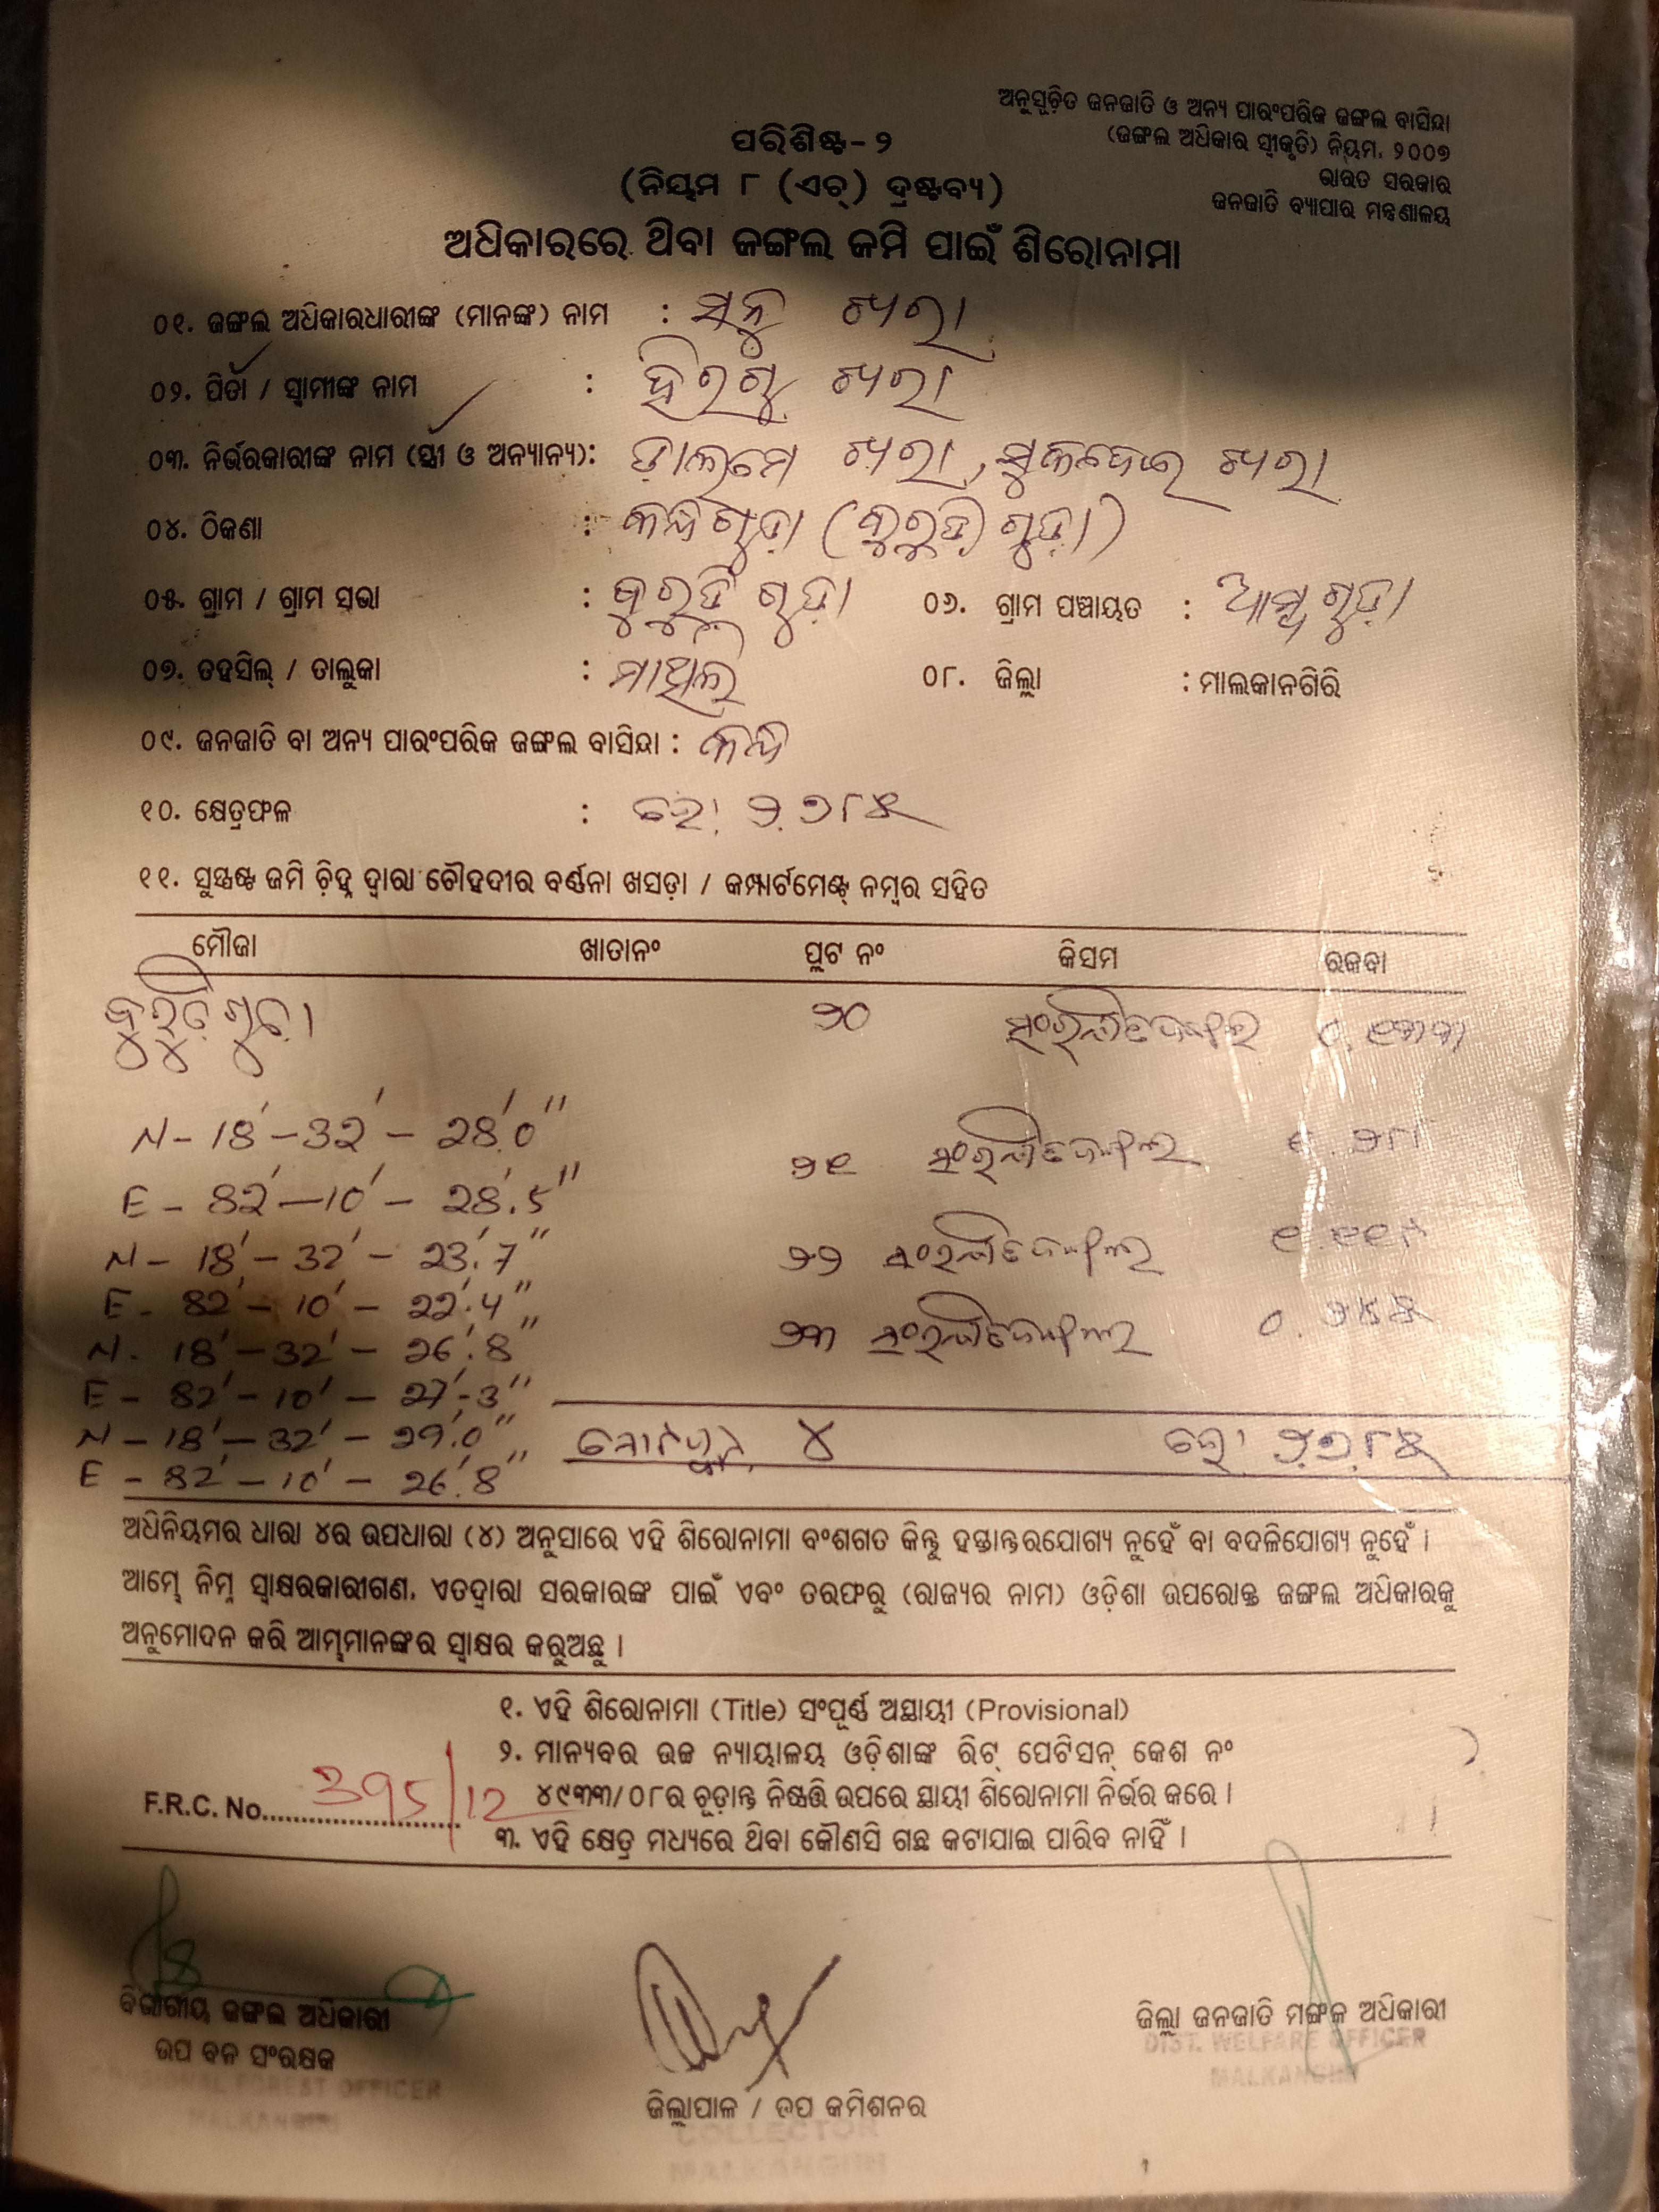 ଅନୁସୂଚିତ ଜନଜାତି ଓ ଅନ୍ୟ ପାରଂପରିକ ଜଙ୍ଗଲ ବାସିନ୍ଦା
(ଜଙ୍ଗଲ ଅଧିକାର ସ୍ୱୀକୃତି) ନିୟମ, ୨୦୦୭
ଭାରତ ସରକାର
ଜନଜାତି ବ୍ୟାପାର ମନ୍ତ୍ରଣାଳୟ
ପରିଶିଷ୍ଟ-୨
(ନିୟମ ୮ (ଏଚ୍) ଦ୍ରଷ୍ଟବ୍ୟ)
ଅଧିକାରରେ ଥିବା ଜଙ୍ଗଲ ଜମି ପାଇଁ ଶିରୋନାମା
୦୧. ଜଙ୍ଗଲ ଅଧିକାରଧାରୀଙ୍କ (ମାନଙ୍କ) ନାମ : ସନୁ ଖରା
୦୨. ପିତା / ସ୍ୱାମୀଙ୍କ ନାମ : ହିରଗୁ ଖରା
୦୩. ନିର୍ଭରକାରୀଙ୍କ ନାମ (ସ୍ତ୍ରୀ ଓ ଅନ୍ୟାନ୍ୟ): ଡାଲମେ ଖରା, ଖରା
୦୪. ଠିକଣା :
୦୫. ଗ୍ରାମ / ଗ୍ରାମ ସଭା : କୁରୁଡ଼ି ଗୁଡ଼ା ୦୬. ଗ୍ରାମ ପଞ୍ଚାୟତ : ଆମ୍ବଗୁଡ଼ା
୦୭. ତହସିଲ୍ / ତାଲୁକା : ମାଥିଲି ୦୮. ଜିଲ୍ଲା : ମାଲକାନଗିରି
୦୯. ଜନଜାତି ବା ଅନ୍ୟ ପାରଂପରିକ ଜଙ୍ଗଲ ବାସିନ୍ଦା :
୧୦. କ୍ଷେତ୍ରଫଳ : ହେ. ୨.୭୮୫
୧୧. ସୁସ୍ପଷ୍ଟ ଜମି ଚିହ୍ନ ଦ୍ୱାରା ଚୌହଦୀର ବର୍ଣ୍ଣନା ଖସଡ଼ା / କମ୍ପାର୍ଟମେଣ୍ଟ୍ ନମ୍ବର ସହିତ
ମୌଜା ଖାତାନଂ ପ୍ଲଟ ନଂ କିସମ ରକବା
କୁରୁଡ଼ି ଗୁଡ଼ା ୨୦ ୦.୧୩୩
N - 18' - 32' - 28'.0"
୨୧
E - 82' - 10' - 28'.5"
N - 18' - 32' - 23'.7"
୨୨
E - 82' - 10' - 22'.4"
୨୩
N - 18' - 32' - 26'.8"
E - 82' - 10' - 27'.3"
N - 18' - 32' - 29'.0"
୪ ହେ. ୨.୭.୮୫
E - 82' - 10' - 26'.8"
ଅଧିନିୟମର ଧାରା ୪ର ଉପଧାରା (୪) ଅନୁସାରେ ଏହି ଶିରୋନାମା ବଂଶଗତ କିନ୍ତୁ ହସ୍ତାନ୍ତରଯୋଗ୍ୟ ନୁହେଁ ବା ବଦଳିଯୋଗ୍ୟ ନୁହେଁ ।
ଆମ୍ଭେ ନିମ୍ନ ସ୍ୱାକ୍ଷରକାରୀଗଣ, ଏତଦ୍ୱାରା ସରକାରଙ୍କ ପାଇଁ ଏବଂ ତରଫରୁ (ରାଜ୍ୟର ନାମ) ଓଡ଼ିଶା ଉପରୋକ୍ତ ଜଙ୍ଗଲ ଅଧିକାରକୁ
ଅନୁମୋଦନ କରି ଆମ୍ଭମାନଙ୍କର ସ୍ୱାକ୍ଷର କରୁଅଛୁ ।
୧. ଏହି ଶିରୋନାମା (Title) ସଂପୂର୍ଣ୍ଣ ଅସ୍ଥାୟୀ (Provisional)
୨. ମାନ୍ୟବର ଉଚ୍ଚ ନ୍ୟାୟାଳୟ ଓଡ଼ିଶାଙ୍କ ରିଟ୍ ପେଟିସନ୍ କେଶ ନଂ
୪୯୩୩/୦୮ର ଚୂଡ଼ାନ୍ତ ନିଷ୍ପତ୍ତି ଉପରେ ସ୍ଥାୟୀ ଶିରୋନାମା ନିର୍ଭର କରେ ।
F.R.C. No. 395/12
୩. ଏହି କ୍ଷେତ୍ର ମଧ୍ୟରେ ଥିବା କୌଣସି ଗଛ କଟାଯାଇ ପାରିବ ନାହିଁ ।
ବିଭାଗୀୟ ଜଙ୍ଗଲ ଅଧିକାରୀ
ଉପ ବନ ସଂରକ୍ଷକ
DIVISIONAL FOREST OFFICER
MALKANGIRI
ଜିଲ୍ଲାପାଳ / ଉପ କମିଶନର
COLLECTOR
MALKANGIRI
ଜିଲ୍ଲା ଜନଜାତି ମଙ୍ଗଳ ଅଧିକାରୀ
DIST. WELFARE OFFICER
MALKANGIRI